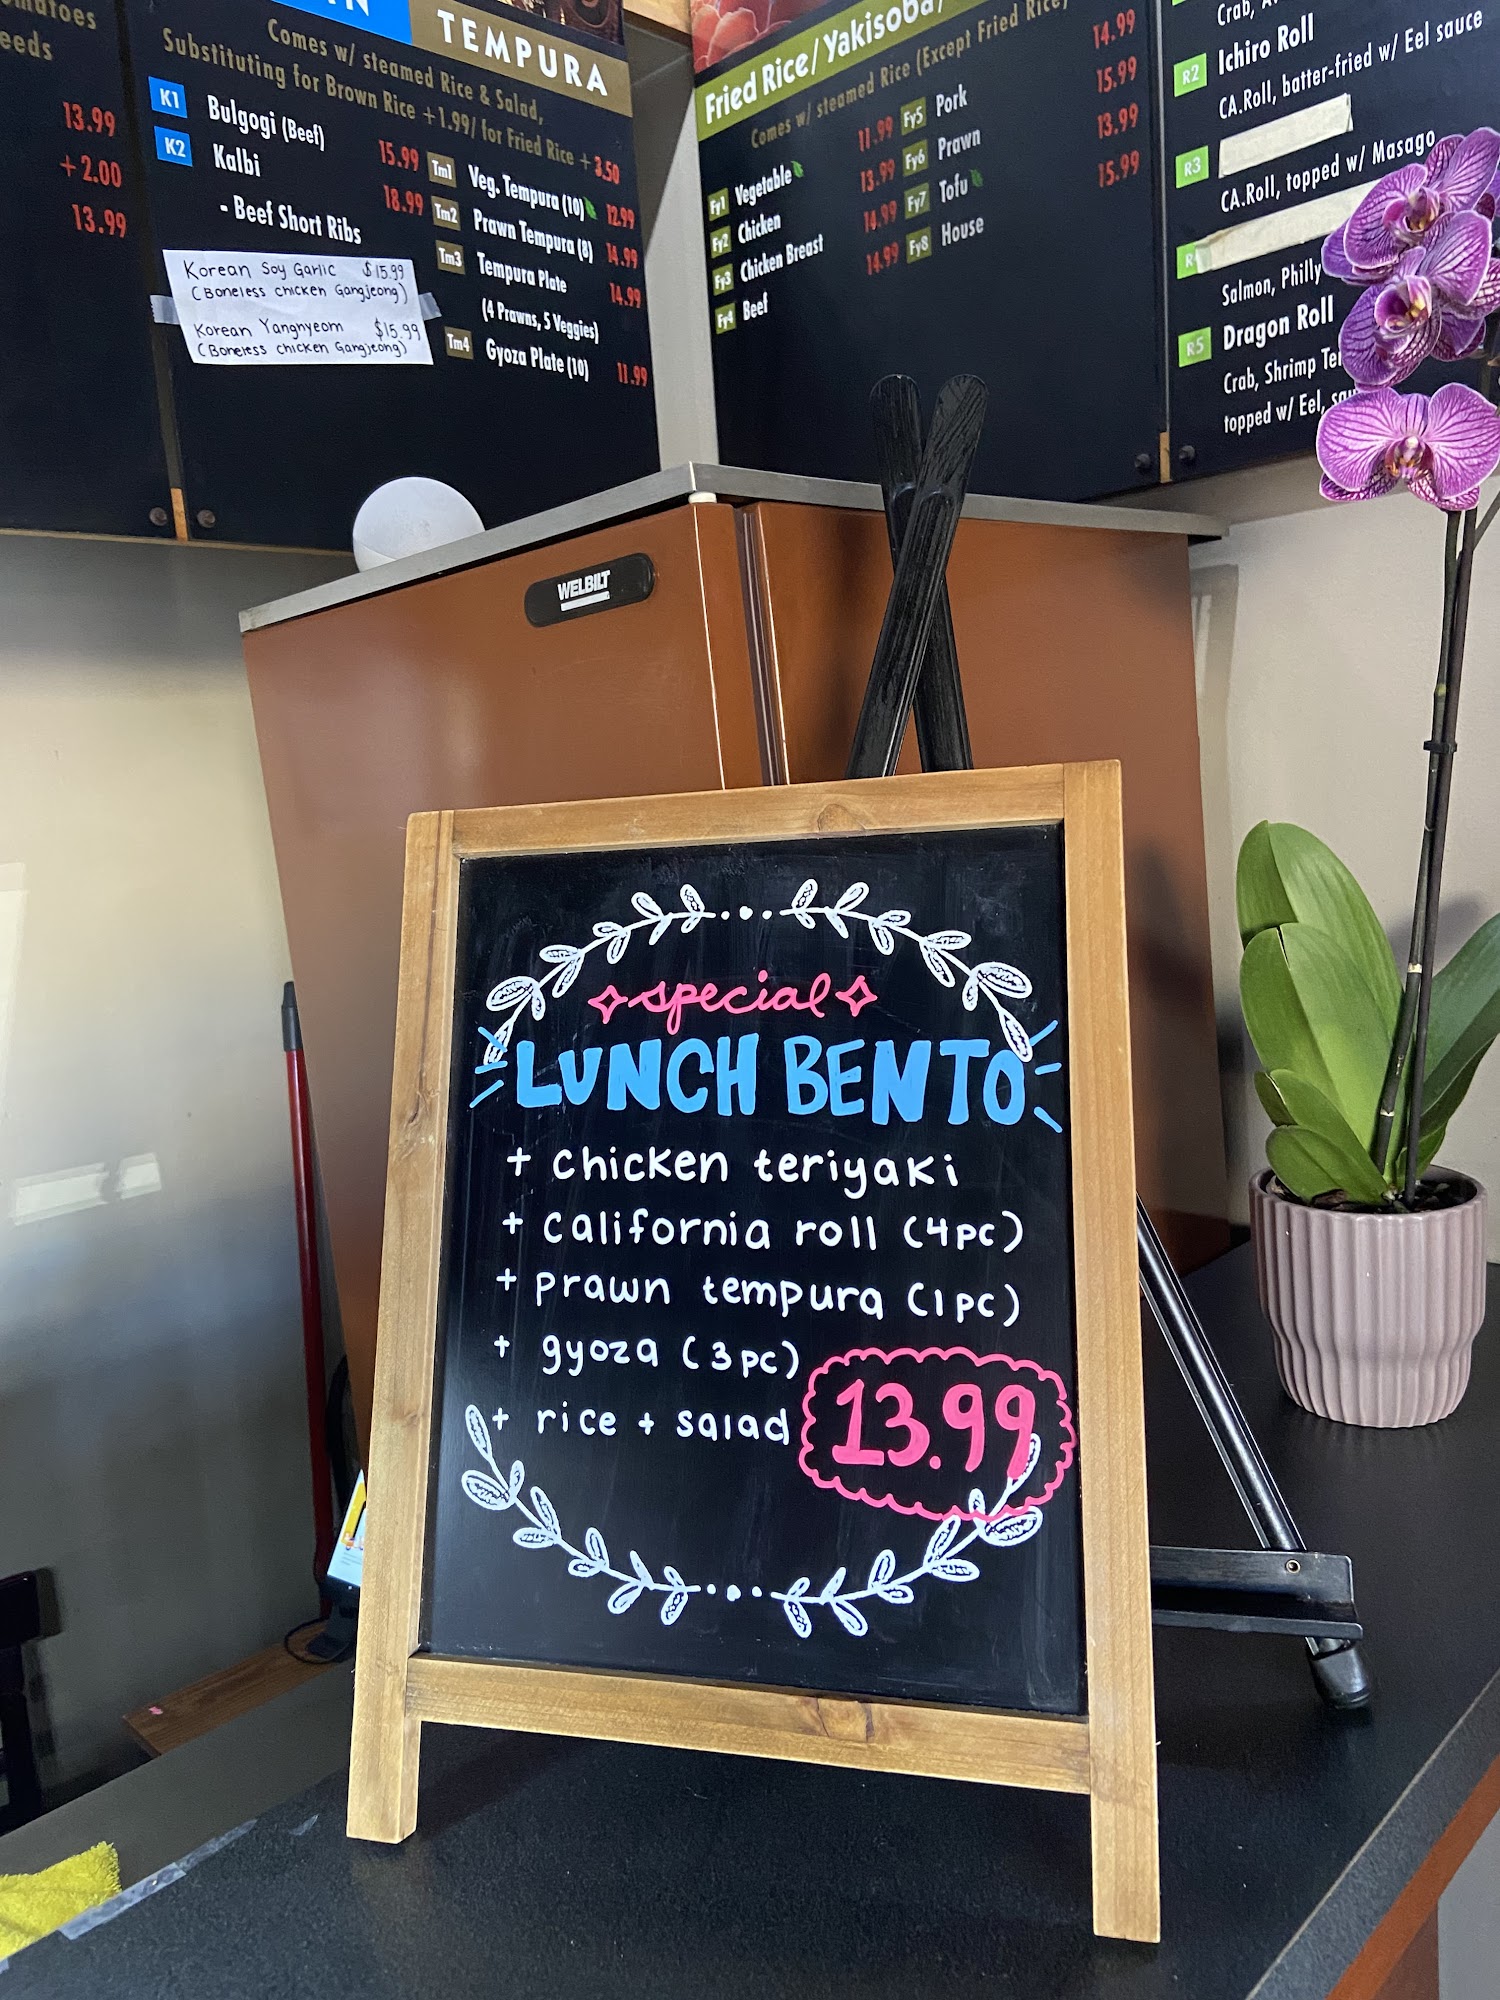 13.99
+2.00
13.99
TEMPURA
Comes w/ steamed Rice & Salad,
Substituting for Brown Rice +1.99/ for Fried Rice +3.50
K1 Bulgogi (Beef) 15.99
K2 Kalbi 18.99
- Beef Short Ribs
Korean Soy Garlic $15.99
(Boneless chicken Gangjeong)
Korean Yangnyeom $15.99
(Boneless chicken Gangjeong)
Tm1 Veg. Tempura (10) 12.99
Tm2 Prawn Tempura (8) 14.99
Tm3 Tempura Plate 14.99
(4 Prawns, 5 Veggies)
Tm4 Gyoza Plate (10) 11.99
Fried Rice/ Yakisoba/
Comes w/ steamed Rice (Except Fried Rice)
Fy1 Vegetable 11.99
Fy2 Chicken 13.99
Fy3 Chicken Breast 14.99
Fy4 Beef 14.99
Fy5 Pork 14.99
Fy6 Prawn 15.99
Fy7 Tofu 13.99
Fy8 House 15.99
Crab,
R2 Ichiro Roll
CA.Roll, batter-fried w/ Eel sauce
R3
CA.Roll, topped w/ Masago
Salmon, Philly
R5 Dragon Roll
Crab, Shrimp
topped w/ Eel,
WELBILT
special
LUNCH BENTO
+ chicken teriyaki
+ california roll (4pc)
+ prawn tempura (1pc)
+ gyoza (3pc)
+ rice + salad
13.99